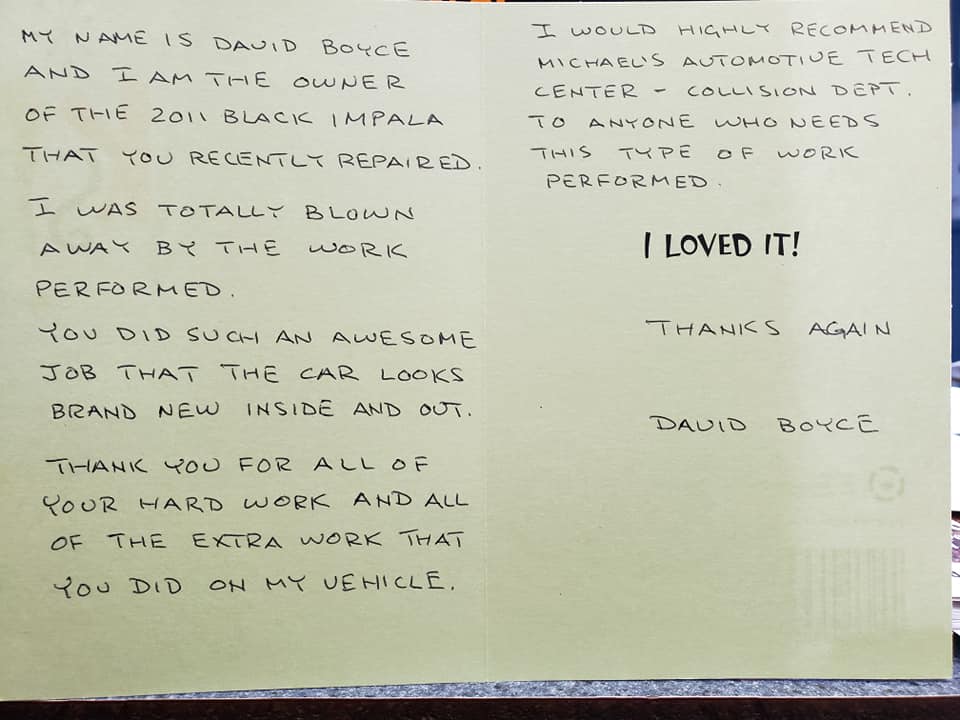 MY NAME IS DAVID BOYCE
AND I AM THE OWNER
OF THE 2011 BLACK IMPALA
THAT YOU RECENTLY REPAIRED.
I WAS TOTALLY BLOWN
AWAY BY THE WORK
PERFORMED.
YOU DID SUCH AN AWESOME
JOB THAT THE CAR LOOKS
BRAND NEW INSIDE AND OUT.
THANK YOU FOR ALL OF
YOUR HARD WORK AND ALL
OF THE EXTRA WORK THAT
YOU DID ON MY VEHICLE.
I WOULD HIGHLY RECOMMEND
MICHAEL'S AUTOMOTIVE TECH
CENTER - COLLISION DEPT.
TO ANYONE WHO NEEDS
THIS TYPE OF WORK
PERFORMED.
I LOVED IT!
THANKS AGAIN
DAVID BOYCE